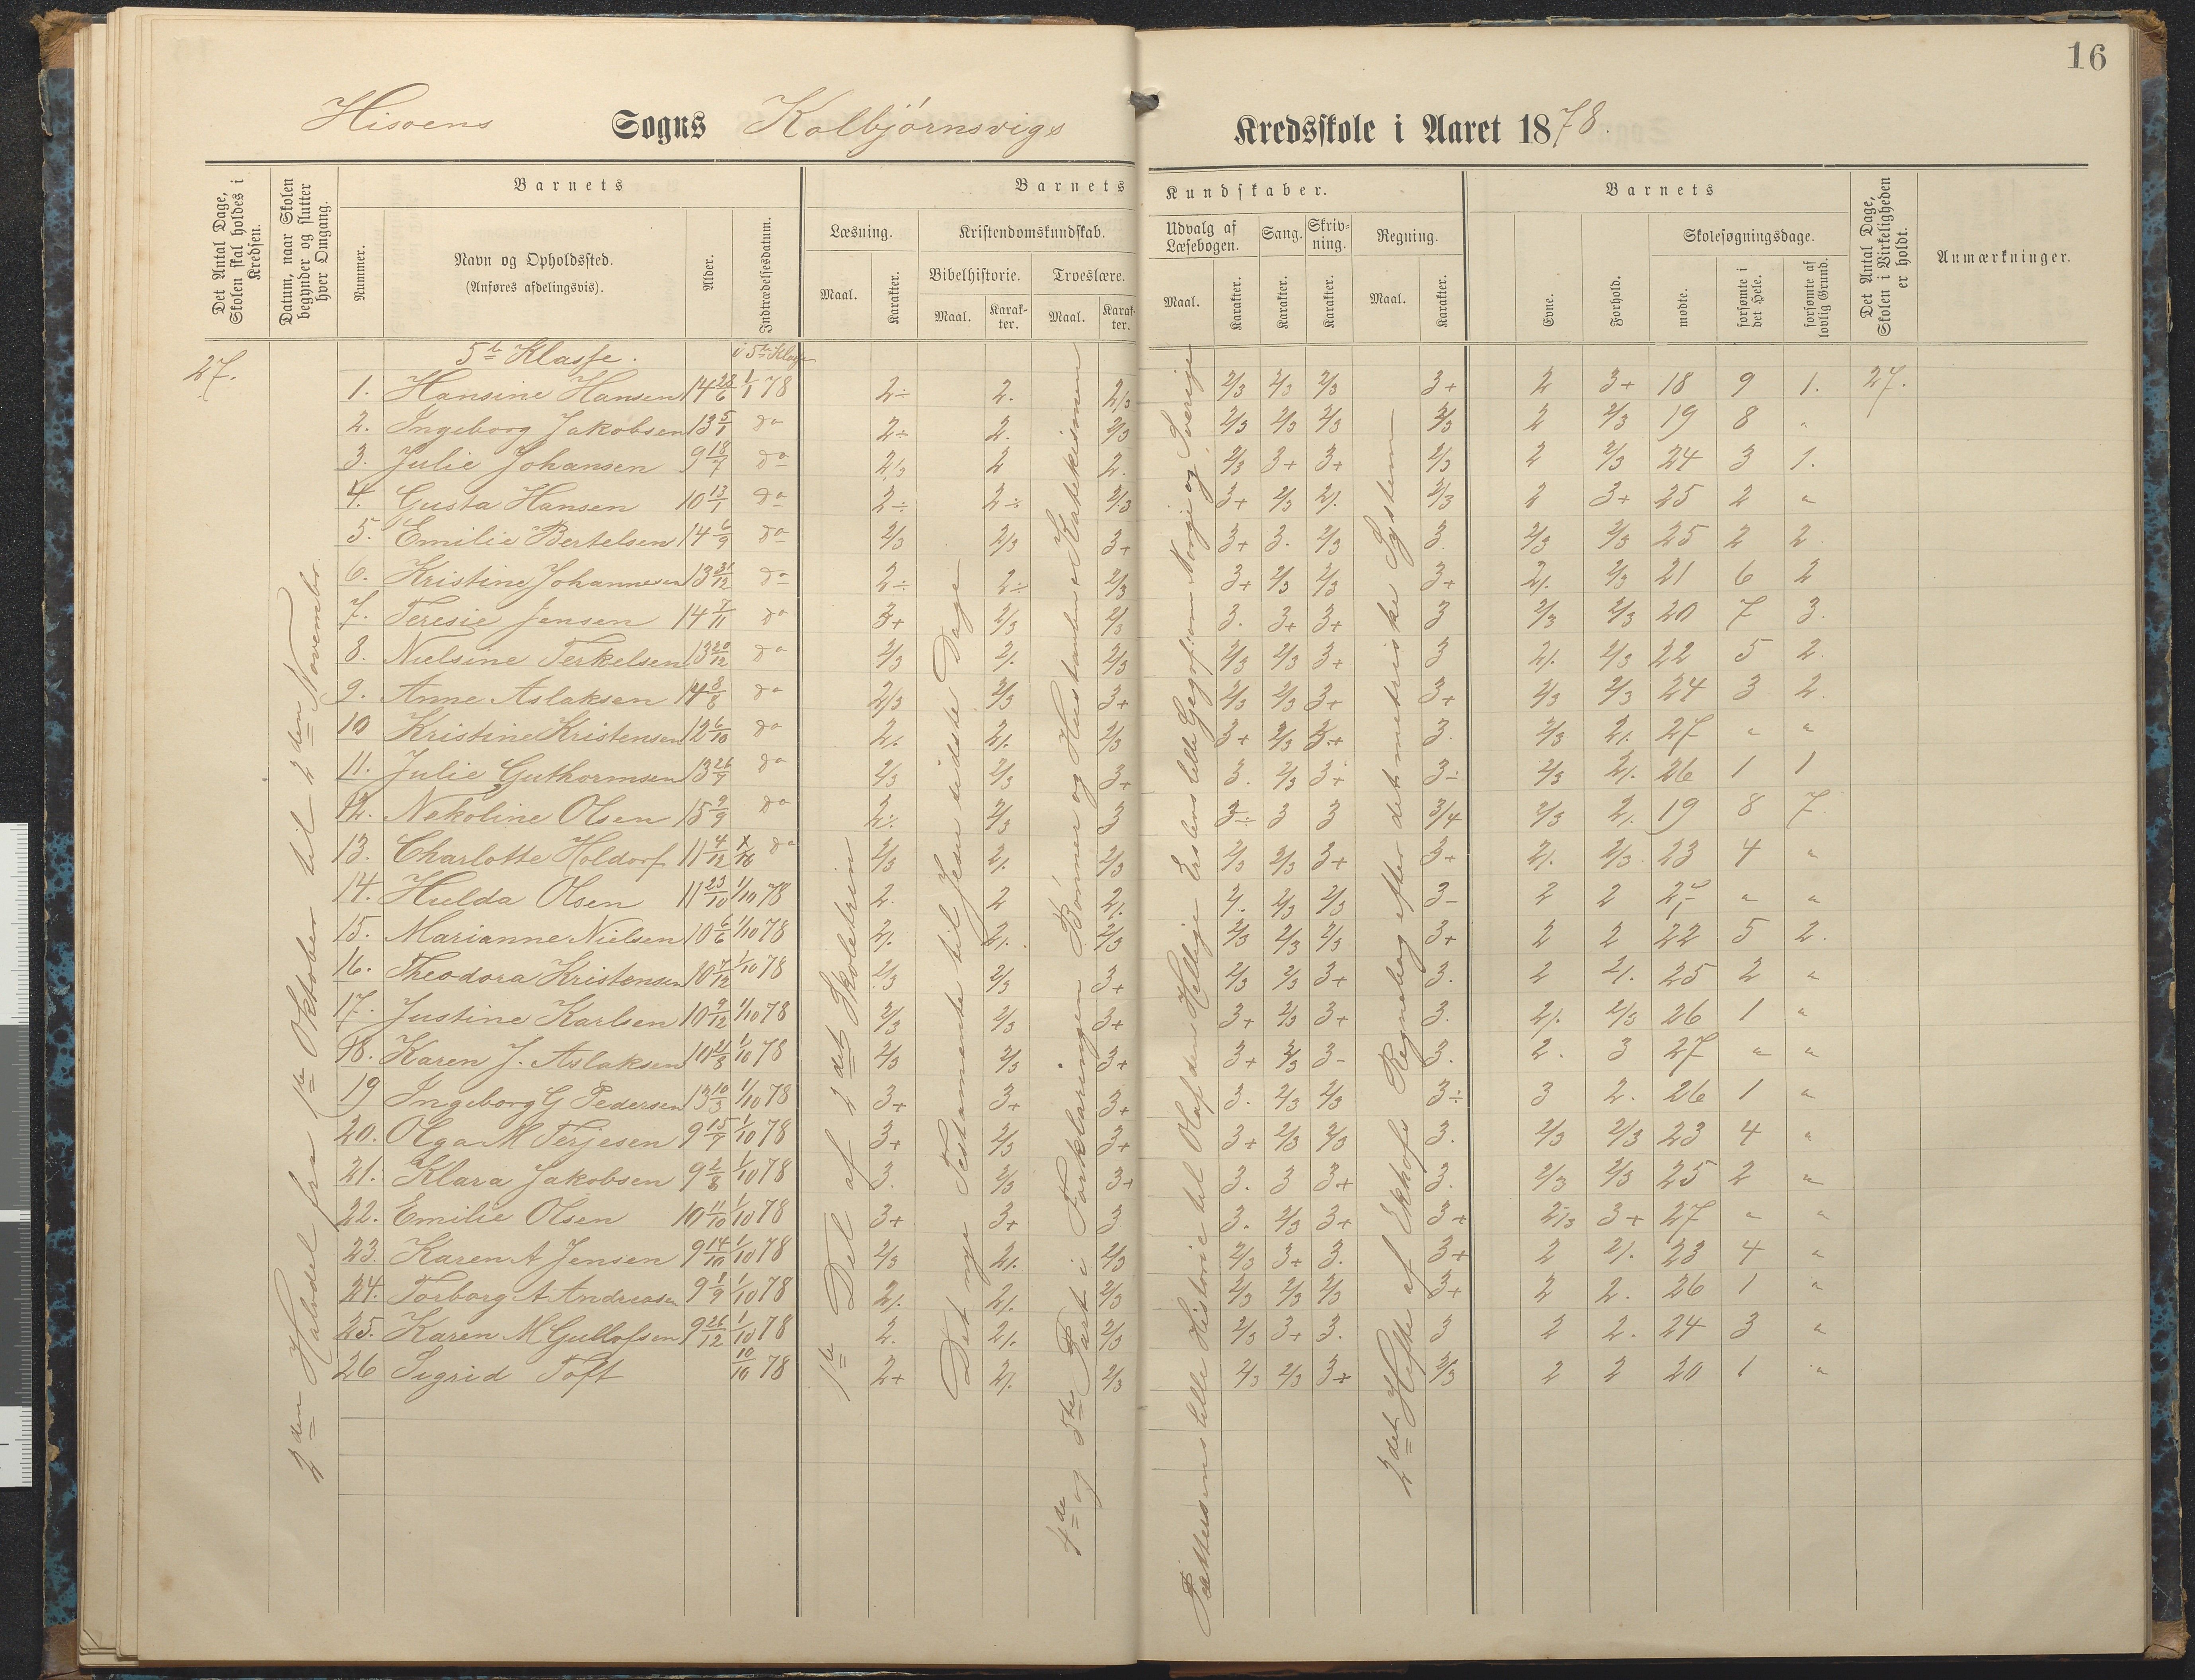 16
Hisøens Sogns Kolbjørnsvigs Kredsskole i Aaret 1878.
Det Antal Dage, Skolen skal holdes i Kredsen.
Datum, naar Skolen begynder og slutter hver Omgang.
Barnets
Nummer.
Navn og Opholdssted.
(Anføres afdelingsvis).
Alder.
Indtrædelsesdatum.
Barnets Kundskaber.
Læsning.
Maal.
Karakter.
Kristendomskundskab.
Bibelhistorie.
Maal.
Karakter.
Troeslære.
Maal.
Karakter.
Udvalg af Læsebogen.
Maal.
Karakter.
Sang.
Karakter.
Skrivning.
Karakter.
Regning.
Maal.
Karakter.
Barnets
Evne.
Forhold.
Skolesøgningsdage.
mødte.
forsømte i det Hele.
forsømte af lovlig Grund.
Det Antal Dage, Skolen i Virkeligheden er holdt.
Anmærkninger.
5te Klasse. i 5te Klasse
27.
2den Halvdel fra 1ste Oktober til 2den Novembr.
1ste Del af 2det Skoletrin
Det nye Testamente til Jesu sidste Dage
4de og 5te Part i Forklaringen Børnene og Hustanden i Katekismen
lille Historie til Olaf den Hellige Erslevs lille Geografi om Norge og Sverige
2det Hefte af Ekhofs Regnebog efter det metriske System
1. Hansine Hansen 14 28/6 1/1 78 2÷ 2. 2/3 2/3 2/3 2/3 3+ 2 3+ 18 9 1. 27.
2. Ingeborg Jakobsen 13 5/1 do 2÷ 2. 2/3 2/3 2/3 2/3 2/3 2 2/3 19 8 "
3. Julie Johansen 9 18/7 do 2/3 2 2. 2/3 3+ 3+ 2/3 2 2/3 24 3 1.
4. Gusta Hansen 10 13/1 do 2÷ 2÷ 2/3 3+ 2/3 2/. 2/3 2 3+ 25 2 "
5. Emilie Bertelsen 14 6/9 do 2/3 2/3 3+ 3+ 3. 2/3 3. 2/3 2/3 25 2 2.
6. Kristine Johannesen 13 31/12 do 2÷ 2÷ 2/3 3+ 2/3 2/3 3+ 2/. 2/3 21 6 2
7. Teresie Jensen 14 7/11 do 3+ 2/3 2/3 3. 3+ 3+ 3 2/3 2/3 20 7 3.
8. Nielsine Terkelsen 13 20/12 do 2/3 2/. 2/3 2/3 2/3 3+ 3 2/. 2/3 22 5 2.
9. Anne Aslaksen 14 8/8 do 2/3 2/3 3+ 2/3 2/3 3+ 3+ 2/3 2/3 24 3 2.
10 Kristine Kristensen 12 6/10 do 2/. 2/. 2/3 3+ 2/3 3+ 3. 2/3 2/. 27 " "
11. Julie Guthormsen 13 26/7 do 2/3 2/3 3+ 3. 2/3 3+ 3÷ 2/3 2/. 26 1 1
12. Nekoline Olsen 15 9/9 do 2/. 2/3 3 3÷ 3 3 3/4 2/3 2/. 19 8 7.
13. Charlotte Holdorf 11 4/12 do 2/3 2/. 2/3 2/3 2/3 3+ 3+ 2/. 2/3 23 4 "
14. Hulda Olsen 11 23/10 1/10 78 2. 2 2/. 2/. 2/3 2/3 3- 2 2 27 " "
15. Marianne Nielsen 10 6/6 1/10 78 2/. 2/. 2/3 2/3 2/3 2/3 3+ 2 2 22 5 2.
16. Theodora Kristensen 10 7/12 1/10 78 2/3 2/3 3+ 2/3 2/3 3+ 3. 2 2/. 25 2 "
17. Justine Karlsen 10 9/12 1/10 78 2/3 2/3 3+ 3+ 2/3 3+ 3. 2/. 2/3 26 1 "
18. Karen J. Aslaksen 10 21/8 1/10 78 2/3 2/3 3+ 3+ 2/3 3- 3. 2. 3 27 " "
19 Ingeborg G Pedersen 13 10/3 1/10 78 3+ 3+ 3+ 3. 2/3 2/3 3÷ 3 2. 26 1 "
20. Olga M Terjesen 9 15/7 1/10 78 3+ 2/3 3+ 3+ 2/3 2/3 3. 2/3 2/3 23 4 "
21. Klara Jakobsen 9 2/8 1/10 78 3. 2/3 3+ 3. 3 3+ 3. 2/3 2/3 25 2 "
22. Emilie Olsen 10 11/10 1/10 78 3+ 3+ 3 3. 2/3 3+ 3+ 2/3 3+ 27 " "
23. Karen A Jensen 9 14/10 1/10 78 2/3 2/. 2/3 2/3 3+ 3. 3+ 2 2/. 23 4 "
24. Torborg A Andreasen 9 1/9 1/10 78 2/. 2/. 2/3 2/3 2/3 2/3 3+ 2 2. 26 1 "
25. Karen M Gullofsen 9 26/12 1/10 78 2. 2/. 2/3 2/3 3+ 3. 3 2 2. 24 3 "
26 Sigrid Toft 10/10 78 2+ 2/. 2/3 2/3 2/3 3+ 2/3 2 2 20 1 "